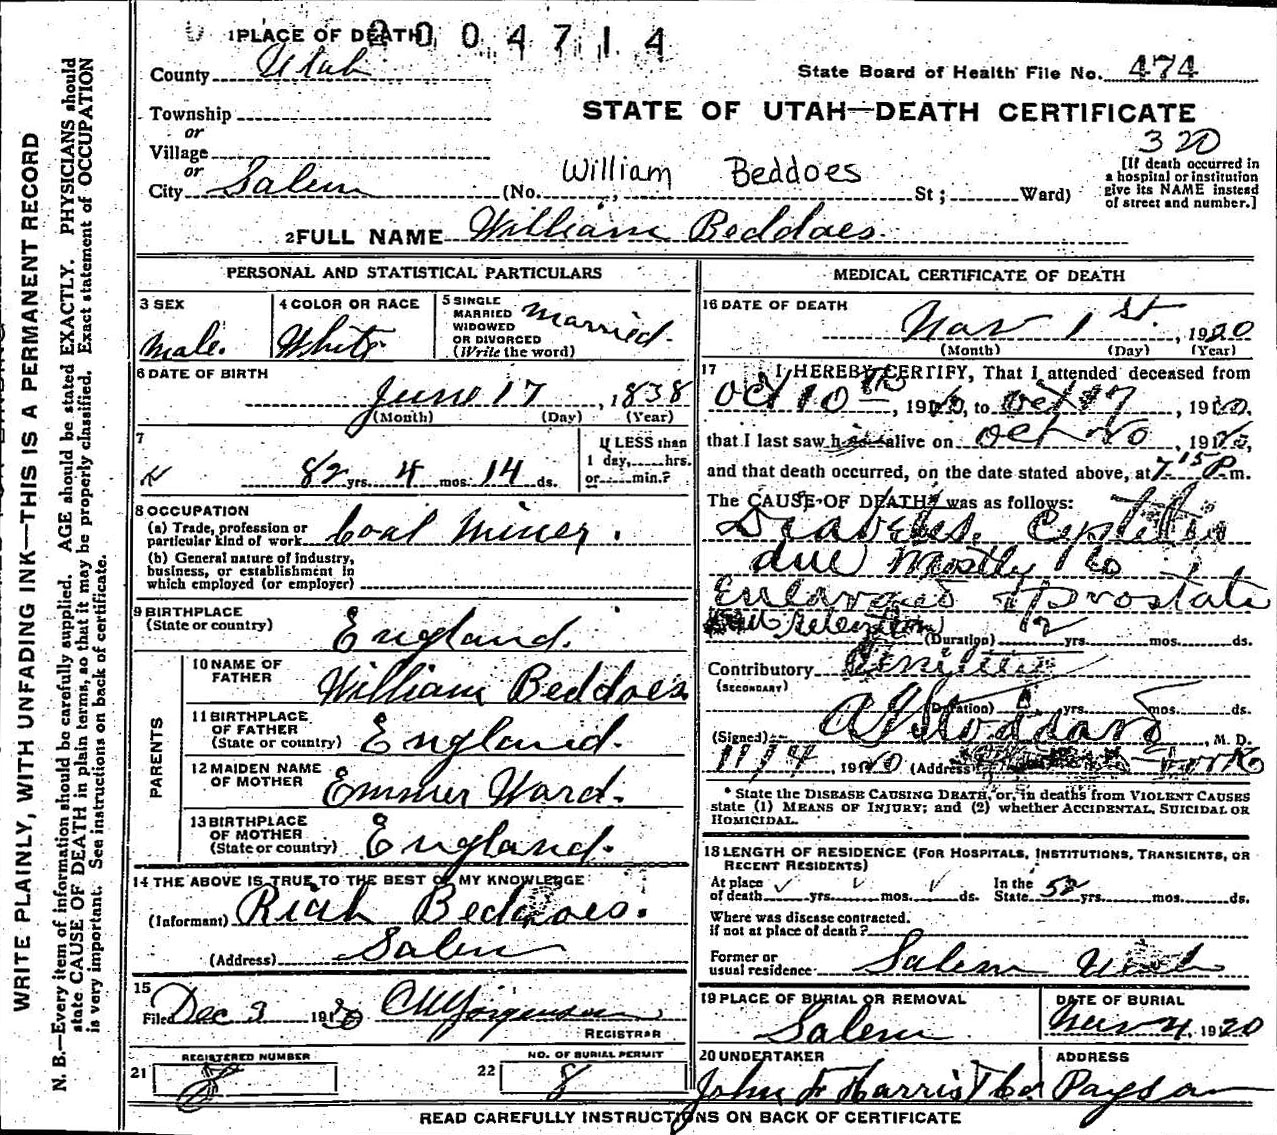 1 PLACE OF DEATH 2004714
County Utah
State Board of Health File No. 474
STATE OF UTAH—DEATH CERTIFICATE
Township
or
Village
or
City Salem (No. William Beddoes St; Ward)
320
[If death occurred in
a hospital or institution
give its NAME instead
of street and number.]
2 FULL NAME William Beddoes
PERSONAL AND STATISTICAL PARTICULARS
3 SEX
Male.
4 COLOR OR RACE
White
5 SINGLE
MARRIED
WIDOWED
OR DIVORCED
(Write the word)
Married.
6 DATE OF BIRTH
June 17, 1838
(Month) (Day) (Year)
7
82 yrs. 4 mos. 14 ds.
If LESS than
1 day, hrs.
or min.?
8 OCCUPATION
(a) Trade, profession or
particular kind of work Coal Miner.
(b) General nature of industry,
business, or establishment in
which employed (or employer)
9 BIRTHPLACE
(State or country) England.
PARENTS
10 NAME OF
FATHER William Beddoes.
11 BIRTHPLACE
OF FATHER
(State or country) England.
12 MAIDEN NAME
OF MOTHER Emmer Ward.
13 BIRTHPLACE
OF MOTHER
(State or country) England.
14 THE ABOVE IS TRUE TO THE BEST OF MY KNOWLEDGE
(Informant) Riah Beddoes.
(Address) Salem
15
Filed Dec 3 1920 C M Jorgensen
REGISTRAR
21 REGISTERED NUMBER
8
22 NO. OF BURIAL PERMIT
8
MEDICAL CERTIFICATE OF DEATH
16 DATE OF DEATH
Nov 1st, 1920
(Month) (Day) (Year)
17 I HEREBY CERTIFY, That I attended deceased from
Oct 10th, 1920, to Oct, 1920.
that I last saw h alive on Oct 20, 1920,
and that death occurred, on the date stated above, at 7.15 P.m.
The CAUSE OF DEATH* was as follows:
Diabetes. Cystitis
due Mostly to
Enlarged Prostate
retention (Duration) 2 yrs. mos. ds.
Contributory Senility
(SECONDARY)
(Duration) yrs. mos. ds.
(Signed) Stoddard, M. D.
11/4, 1920 (Address) Fork
* State the DISEASE CAUSING DEATH, or, in deaths from VIOLENT CAUSES
state (1) MEANS OF INJURY; and (2) whether ACCIDENTAL, SUICIDAL OR
HOMICIDAL.
18 LENGTH OF RESIDENCE (FOR HOSPITALS, INSTITUTIONS, TRANSIENTS, OR
RECENT RESIDENTS)
At place
of death yrs. mos. ds.
In the
State 52 yrs. mos. ds.
Where was disease contracted.
if not at place of death?
Former or
usual residence Salem Utah
19 PLACE OF BURIAL OR REMOVAL
Salem
DATE OF BURIAL
Nov 4, 1920
20 UNDERTAKER
John F Harris
ADDRESS
Payson
READ CAREFULLY INSTRUCTIONS ON BACK OF CERTIFICATE
WRITE PLAINLY, WITH UNFADING INK—THIS IS A PERMANENT RECORD
N. B.—Every item of information should be carefully supplied. AGE should be stated EXACTLY. PHYSICIANS should
state CAUSE OF DEATH in plain terms, so that it may be properly classified. Exact statement of OCCUPATION
is very important. See instructions on back of certificate.